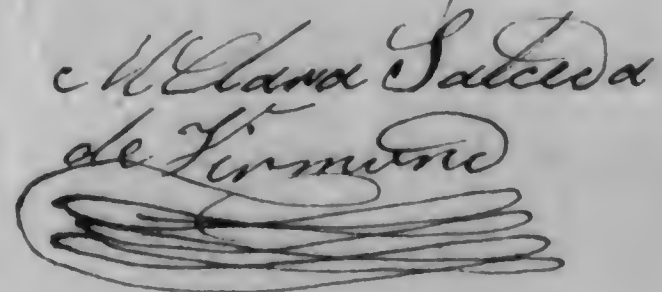 M Clara Salceda
de Virmund